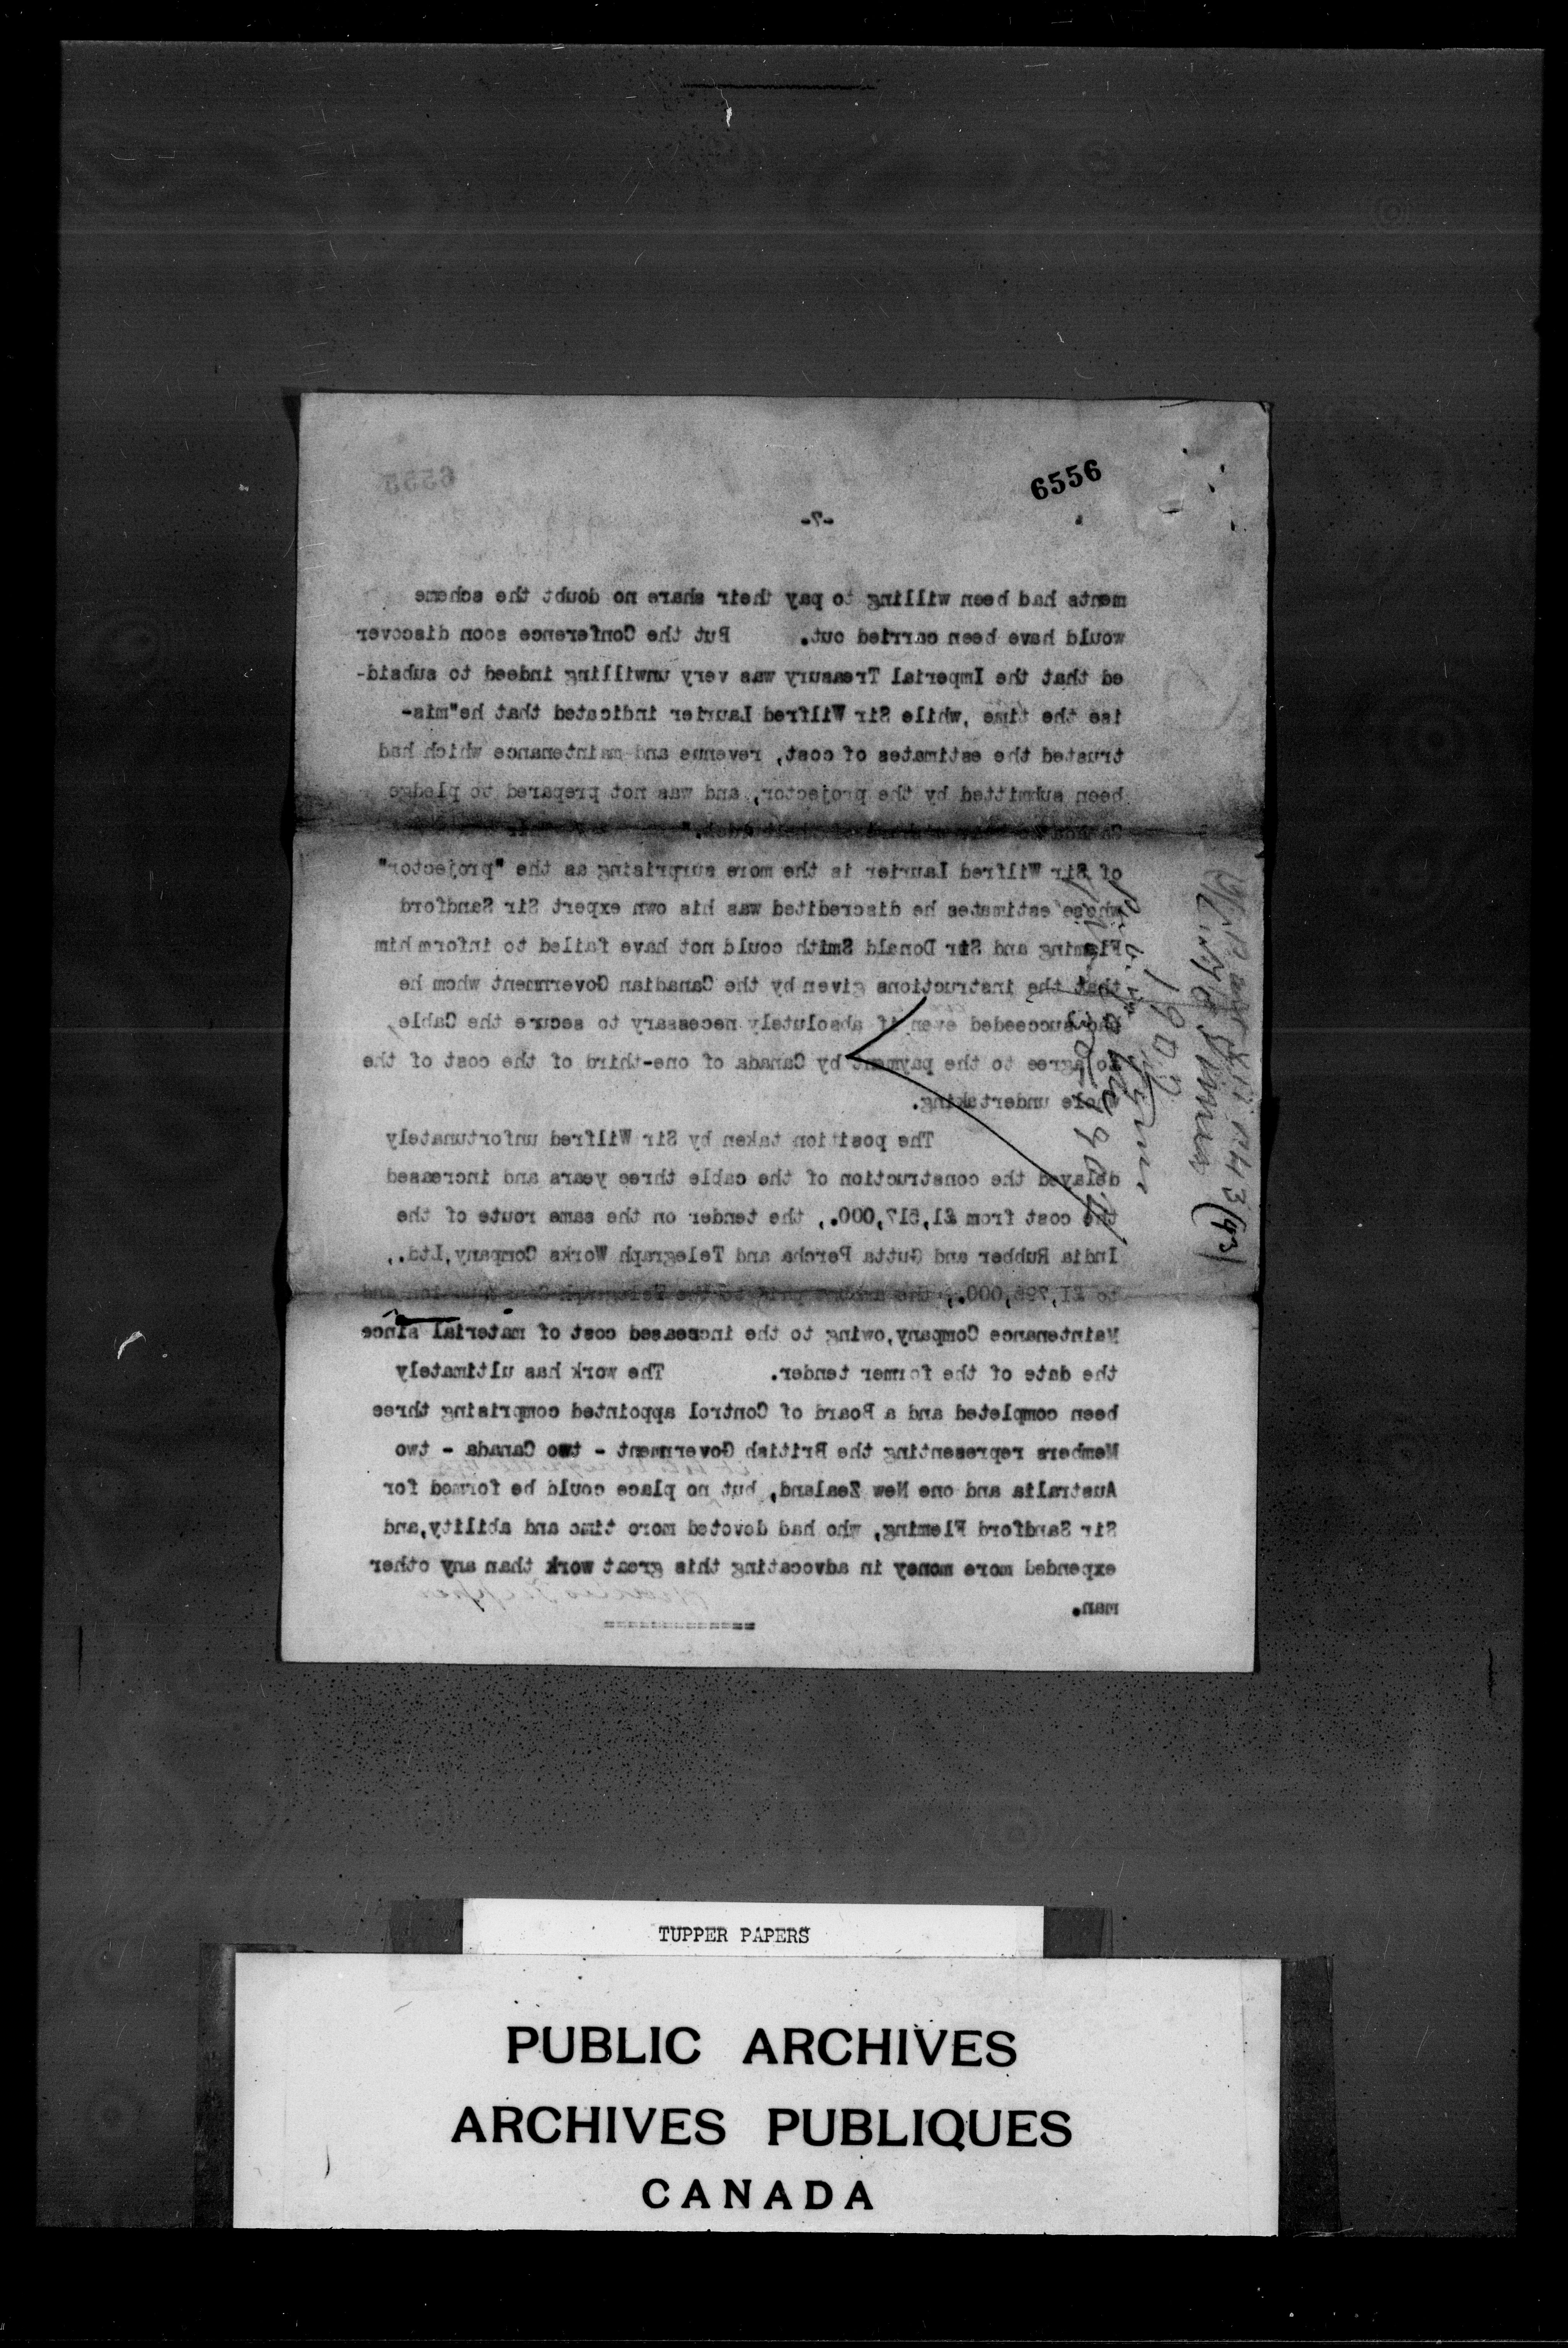 6556
6555
-7-
ments had been willing to pay their share no doubt the scheme
would have been carried out. But the Conference soon discover
ed that the Imperial Treasury was very unwilling indeed to subsid-
ise the time ,while Sir Wilfred Laurier indicated that he"mis-
trusted the estimates of cost, revenue and maintenance which had
been submitted by the projector, and was not prepared to pledge
of Sir Wilfred Laurier is the more surprising as the "projector"
whose estimates he discredited was his own expert Sir Sandford
Fleming and Sir Donald Smith could not have failed to inform him
that the instructions given by the Canadian Government whom he
had succeeded even if absolutely necessary to secure the Cable,
to agree to the payment by Canada of one-third of the cost of the
whole undertaking.
The position taken by Sir Wilfred unfortunately
delayed the construction of the cable three years and increased
the cost from £1,517,000., the tender on the same route of the
India Rubber and Gutta Percha and Telegraph Works Company,Ltd.,
to £1,795,000., the amount paid to the Telegraph Construction and
Maintenance Company,owing to the increased cost of material since
the date of the former tender. The work has ultimately
been completed and a Board of Control appointed comprising three
Members representing the British Government - two Canada - two
Australia and one New Zealand, but no place could be formed for
Sir Sandford Fleming, who had devoted more time and ability,and
expended more money in advocating this great work than any other
man.
1907
(93)
TUPPER PAPERS
PUBLIC ARCHIVES
ARCHIVES PUBLIQUES
CANADA